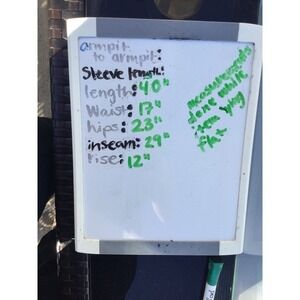 armpit
to armpit:
Sleeve length:
length: 40"
Waist: 17"
hips: 23"
inseam: 29"
rise: 12"
measurements
done while
item lying
flat